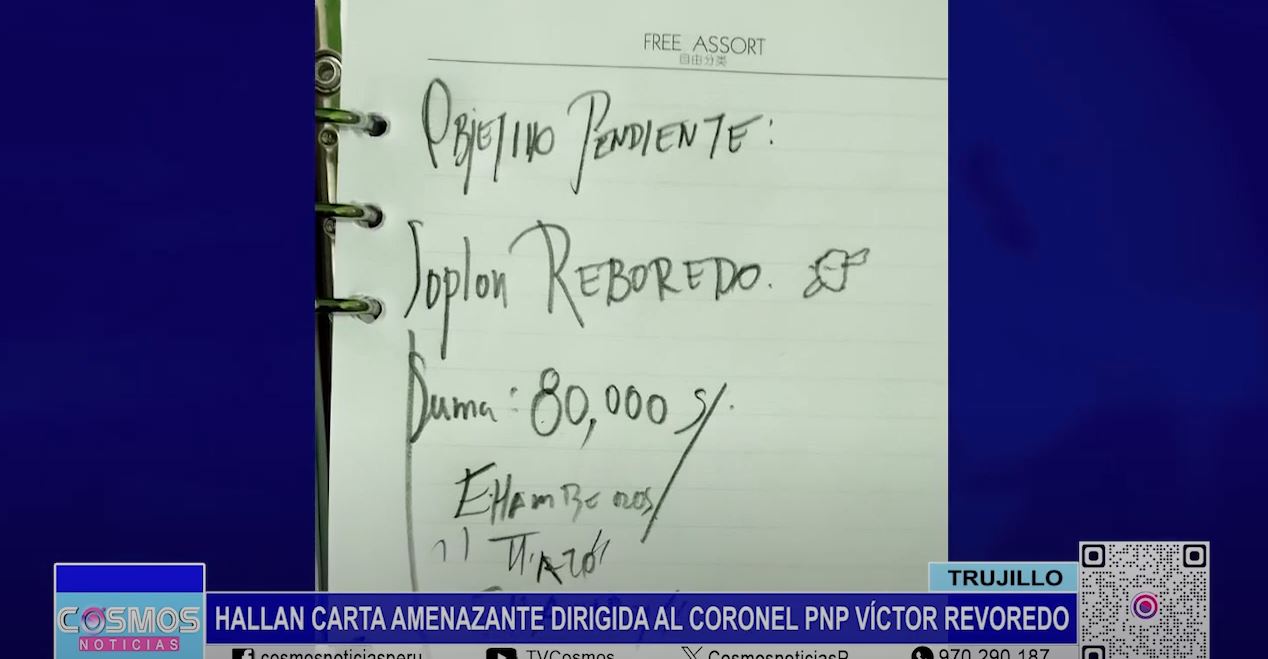 FREE ASSORT
自由分类
OBJETIVO PENDIENTE:
Soplon REBOREDO.
Suma: 80,000 S/.
TRUJILLO
COSMOS
NOTICIAS
HALLAN CARTA AMENAZANTE DIRIGIDA AL CORONEL PNP VÍCTOR REVOREDO
cosmosnoticiasperu
TVCosmos
CosmosnoticiasP
970 290 187